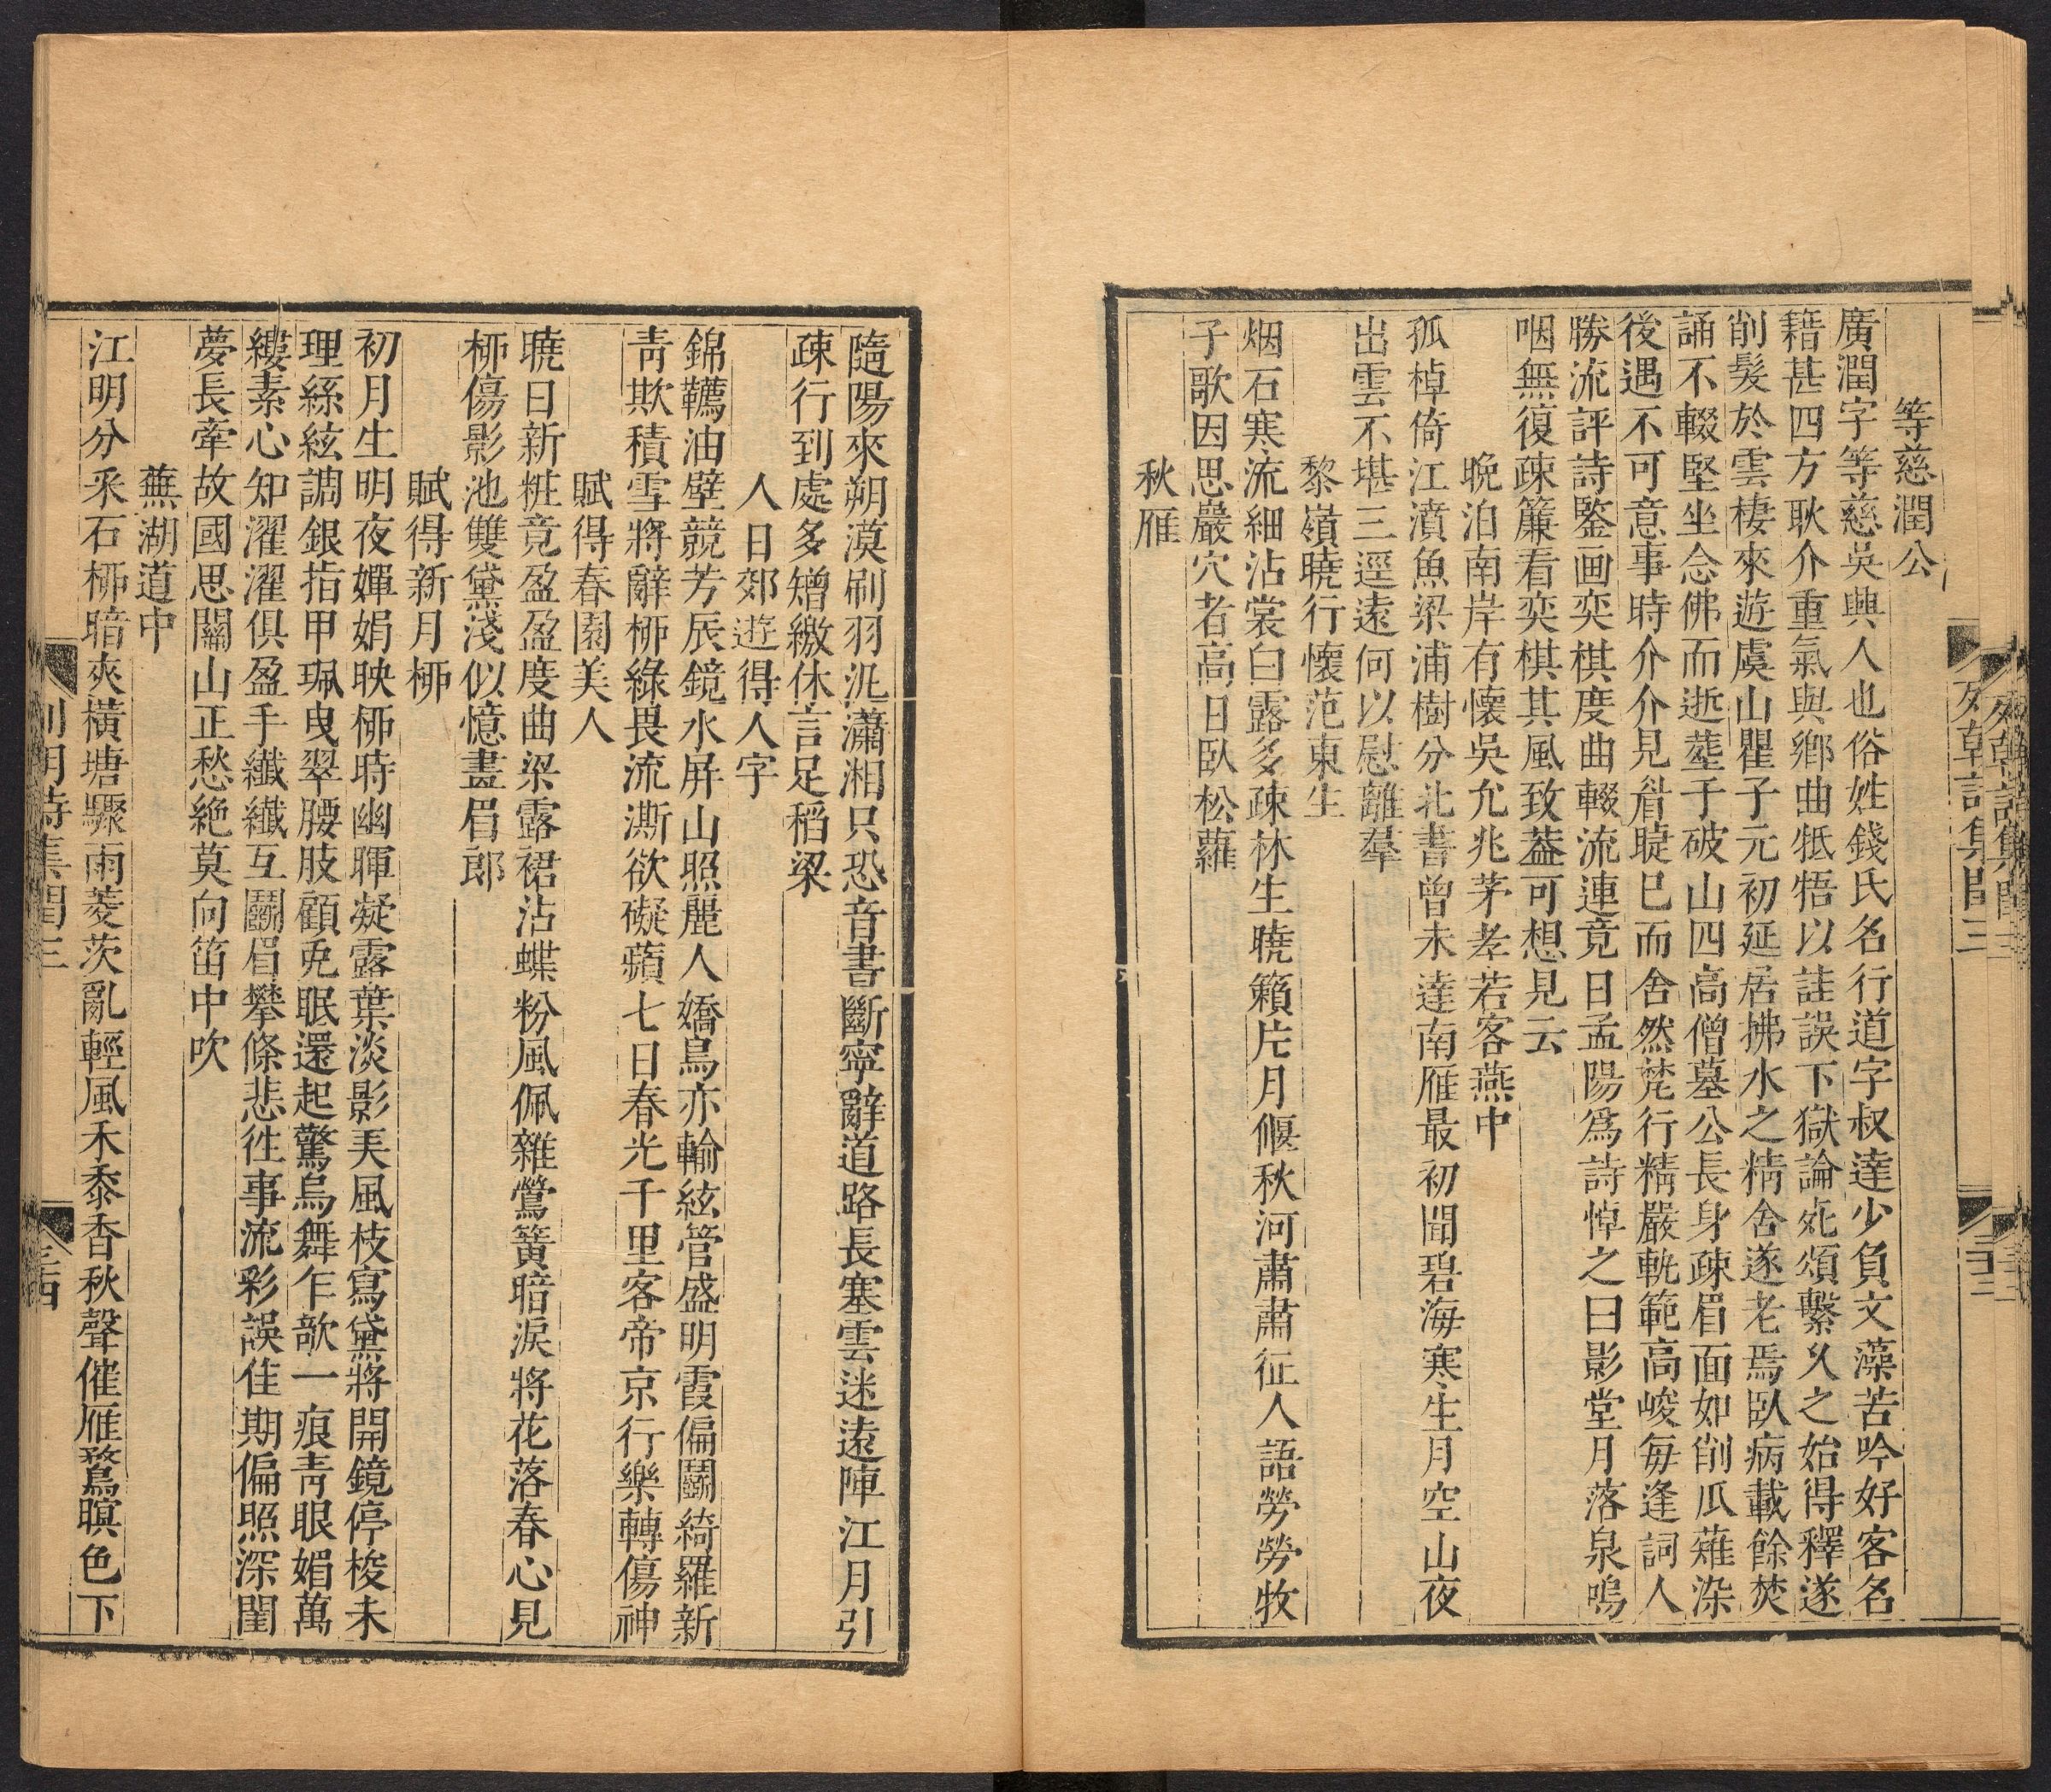 等慈潤公
廣潤字等慈吳興人也俗姓錢氏名行道字叔達少負文藻苦吟好客名
籍甚四方耿介重氣與鄉曲牴牾以詿誤下獄論死頌繫久之始得釋遂
削髮於雲棲來遊虞山瞿子元初延居拂水之精舍遂老焉臥病載餘焚
誦不輟堅坐念佛而逝塟于破山四高僧墓公長身疎眉面如削瓜薙染
後遇不可意事時介介見眉睫巳而舍然梵行精嚴軌範高峻每逢詞人
勝流評詩鑒画奕棋度曲輟流連竟日孟陽爲詩悼之曰影堂月落泉嗚
咽無復疎簾看奕棋其風致葢可想見云
晚泊南岸有懷吳允兆茅孝若客燕中
孤棹倚江濆魚梁浦樹分北書曾未達南雁最初聞碧海寒生月空山夜
出雲不堪三逕遠何以慰離羣
黎嶺曉行懷范東生
烟石寒流細沾裳白露多疎林生曉籟片月偃秋河肅肅征人語勞勞牧
子歌因思巖穴者高日臥松蘿
秋雁
隨陽來朔漠刷羽汎瀟湘只恐音書斷寧辭道路長塞雲迷遠陣江月引
疎行到處多矰繳休言足稻粱
人日郊遊得人字
錦韉油壁競芳辰鏡水屏山照麗人嬌鳥亦輸絃管盛明霞偏鬭綺羅新
靑欺積雪將辭栁綠畏流澌欲礙蘋七日春光千里客帝京行樂轉傷神
賦得春園美人
曉日新粧竟盈盈度曲梁露裙沾蝶粉風佩雜鶯簧暗淚將花落春心見
栁傷影池雙黛淺似憶畫眉郎
賦得新月栁
初月生明夜嬋娟映栁時幽暉凝露葉淡影美風枝寫黛將開鏡停梭未
理絲絃調銀指甲珮曳翠腰肢顧兎眠還起驚烏舞乍欹一痕靑眼媚萬
縷素心知濯濯俱盈手纖纖互鬭眉攀條悲徃事流彩誤佳期偏照深閨
夢長牽故國思關山正愁絶莫向笛中吹
蕪湖道中
江明分采石栁暗夾橫塘驟雨菱茨亂輕風禾黍香秋聲催雁鶩暝色下